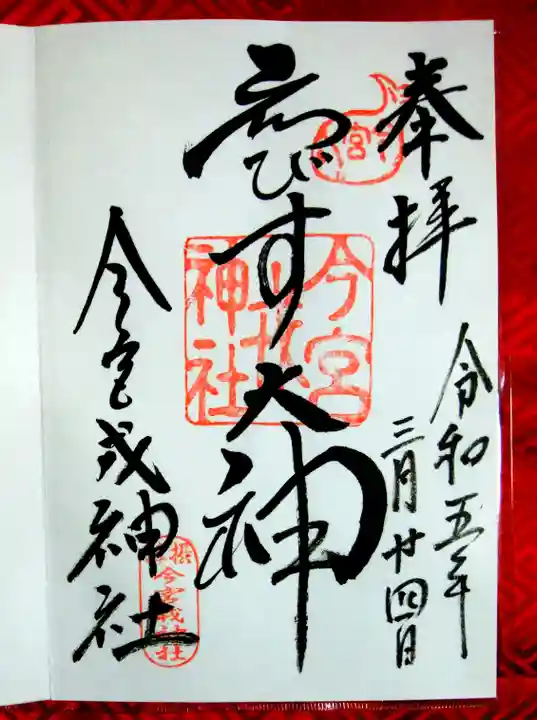 奉拝
令和五年
三月廿四日
ゑびす大神
今宮戎神社
今宮戎神社
今宮戎神社